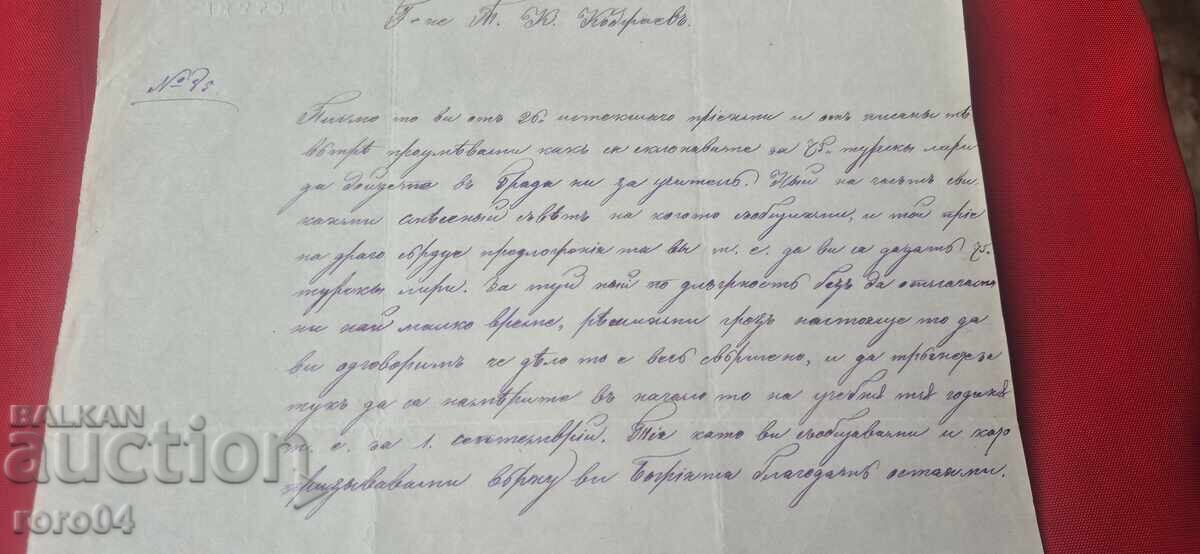 Г-не Т. К. Кѫрджиевъ.
№ 95
Писмо то ви отъ 26. истекшаго пріехми и отъ писаны тѣ
вѫтрѣ проумѣвами какъ са склонявате за 75. турскы лири
да дойдете въ града ни за учитель. Ный на часътъ сви
кахми смѣсеный съвѣтъ на когото съобщихми, и той пріе
на драго сърдце предложеніе та вы т. е. да ви са дадатъ 75.
турскы лири. За туй ный по длъжность безъ да отлагами
ни най малко време, рѣшихми чрезъ настояще то да
ви одговоримъ че дѣло то е весь свършено, и да тръгнете за
тукъ да са намѣрите въ начало то на учебнѫ тѫ годинѫ
т. е. за 1. септемврій. Тіе като ви съобщавами и като
призывавами върху ви Божіята благодать остаями.
BALKAN
auction
roro04